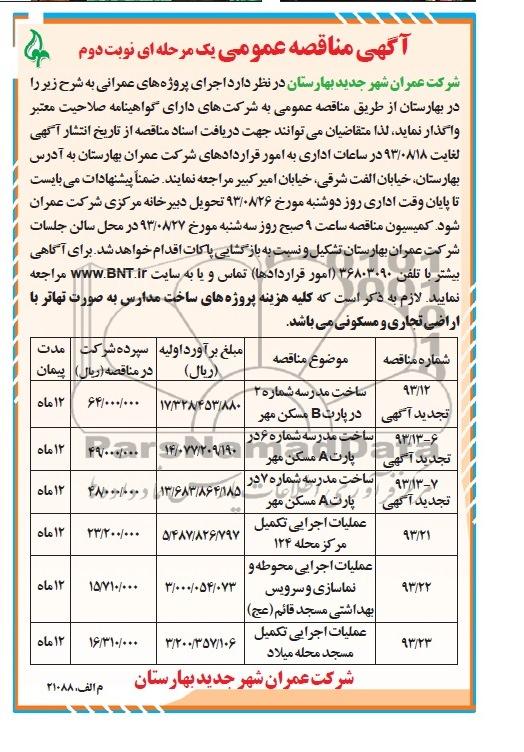 آگهی مناقصه عمومی یک مرحله ای نوبت دوم
شرکت عمران شهر جدید بهارستان در نظر دارد اجرای پروژه های عمرانی به شرح زیر را
در بهارستان از طریق مناقصه عمومی به شرکت های دارای گواهینامه صلاحیت معتبر
واگذار نماید، لذا متقاضیان می توانند جهت دریافت اسناد مناقصه از تاریخ انتشار آگهی
لغایت ۹۳/۰۸/۱۸ در ساعات اداری به امور قراردادهای شرکت عمران بهارستان به آدرس
بهارستان، خیابان الفت شرقی، خیابان امیر کبیر مراجعه نمایند. ضمناً پیشنهادات می بایست
تا پایان وقت اداری روز دوشنبه مورخ ۹۳/۰۸/۲۶ تحویل دبیرخانه مرکزی شرکت عمران
شود. کمیسیون مناقصه ساعت ۹ صبح روز سه شنبه مورخ ۹۳/۰۸/۲۷ در محل سالن جلسات
شرکت عمران بهارستان تشکیل و نسبت به بازگشایی پاکات اقدام خواهد شد. برای آگاهی
بیشتر با تلفن ۳۶۸۰۳۰۹۰ (امور قراردادها) تماس و یا به سایت www.BNT.ir مراجعه
نمایید. لازم به ذکر است که کلیه هزینه پروژه های ساخت مدارس به صورت تهاتر با
اراضی تجاری و مسکونی می باشد.
شماره مناقصه موضوع مناقصه مبلغ برآورد اولیه (ریال) سپرده شرکت در مناقصه (ریال) مدت پیمان
۹۳/۱۲ تجدید آگهی ساخت مدرسه شماره ۲ در پارت B مسکن مهر ۱۷/۳۲۸/۴۵۳/۸۸۰ ۶۴/۰۰۰/۰۰۰ ۱۲ ماه
۹۳/۱۳-۶ تجدید آگهی ساخت مدرسه شماره ۶ در پارت A مسکن مهر ۱۴/۰۷۷/۲۰۹/۱۹۰ ۴۹/۰۰۰/۰۰۰ ۱۲ ماه
۹۳/۱۳-۷ تجدید آگهی ساخت مدرسه شماره ۷ در پارت A مسکن مهر ۱۳/۶۸۳/۸۶۴/۱۸۵ ۴۸/۰۰۰/۰۰۰ ۱۲ ماه
۹۳/۲۱ عملیات اجرایی تکمیل مرکز محله ۱۲۴ ۵/۴۸۷/۸۲۶/۷۹۷ ۲۳/۲۰۰/۰۰۰ ۱۲ ماه
۹۳/۲۲ عملیات اجرایی محوطه و نماسازی و سرویس بهداشتی مسجد قائم (عج) ۳/۰۰۰/۰۵۴/۰۷۳ ۱۵/۷۱۰/۰۰۰ ۱۲ ماه
۹۳/۲۳ عملیات اجرایی تکمیل مسجد محله میلاد ۳/۲۰۰/۳۵۷/۱۰۶ ۱۶/۳۱۰/۰۰۰ ۱۲ ماه
شرکت عمران شهر جدید بهارستان
م الف، ۲۱۰۸۸
ParsNamadData